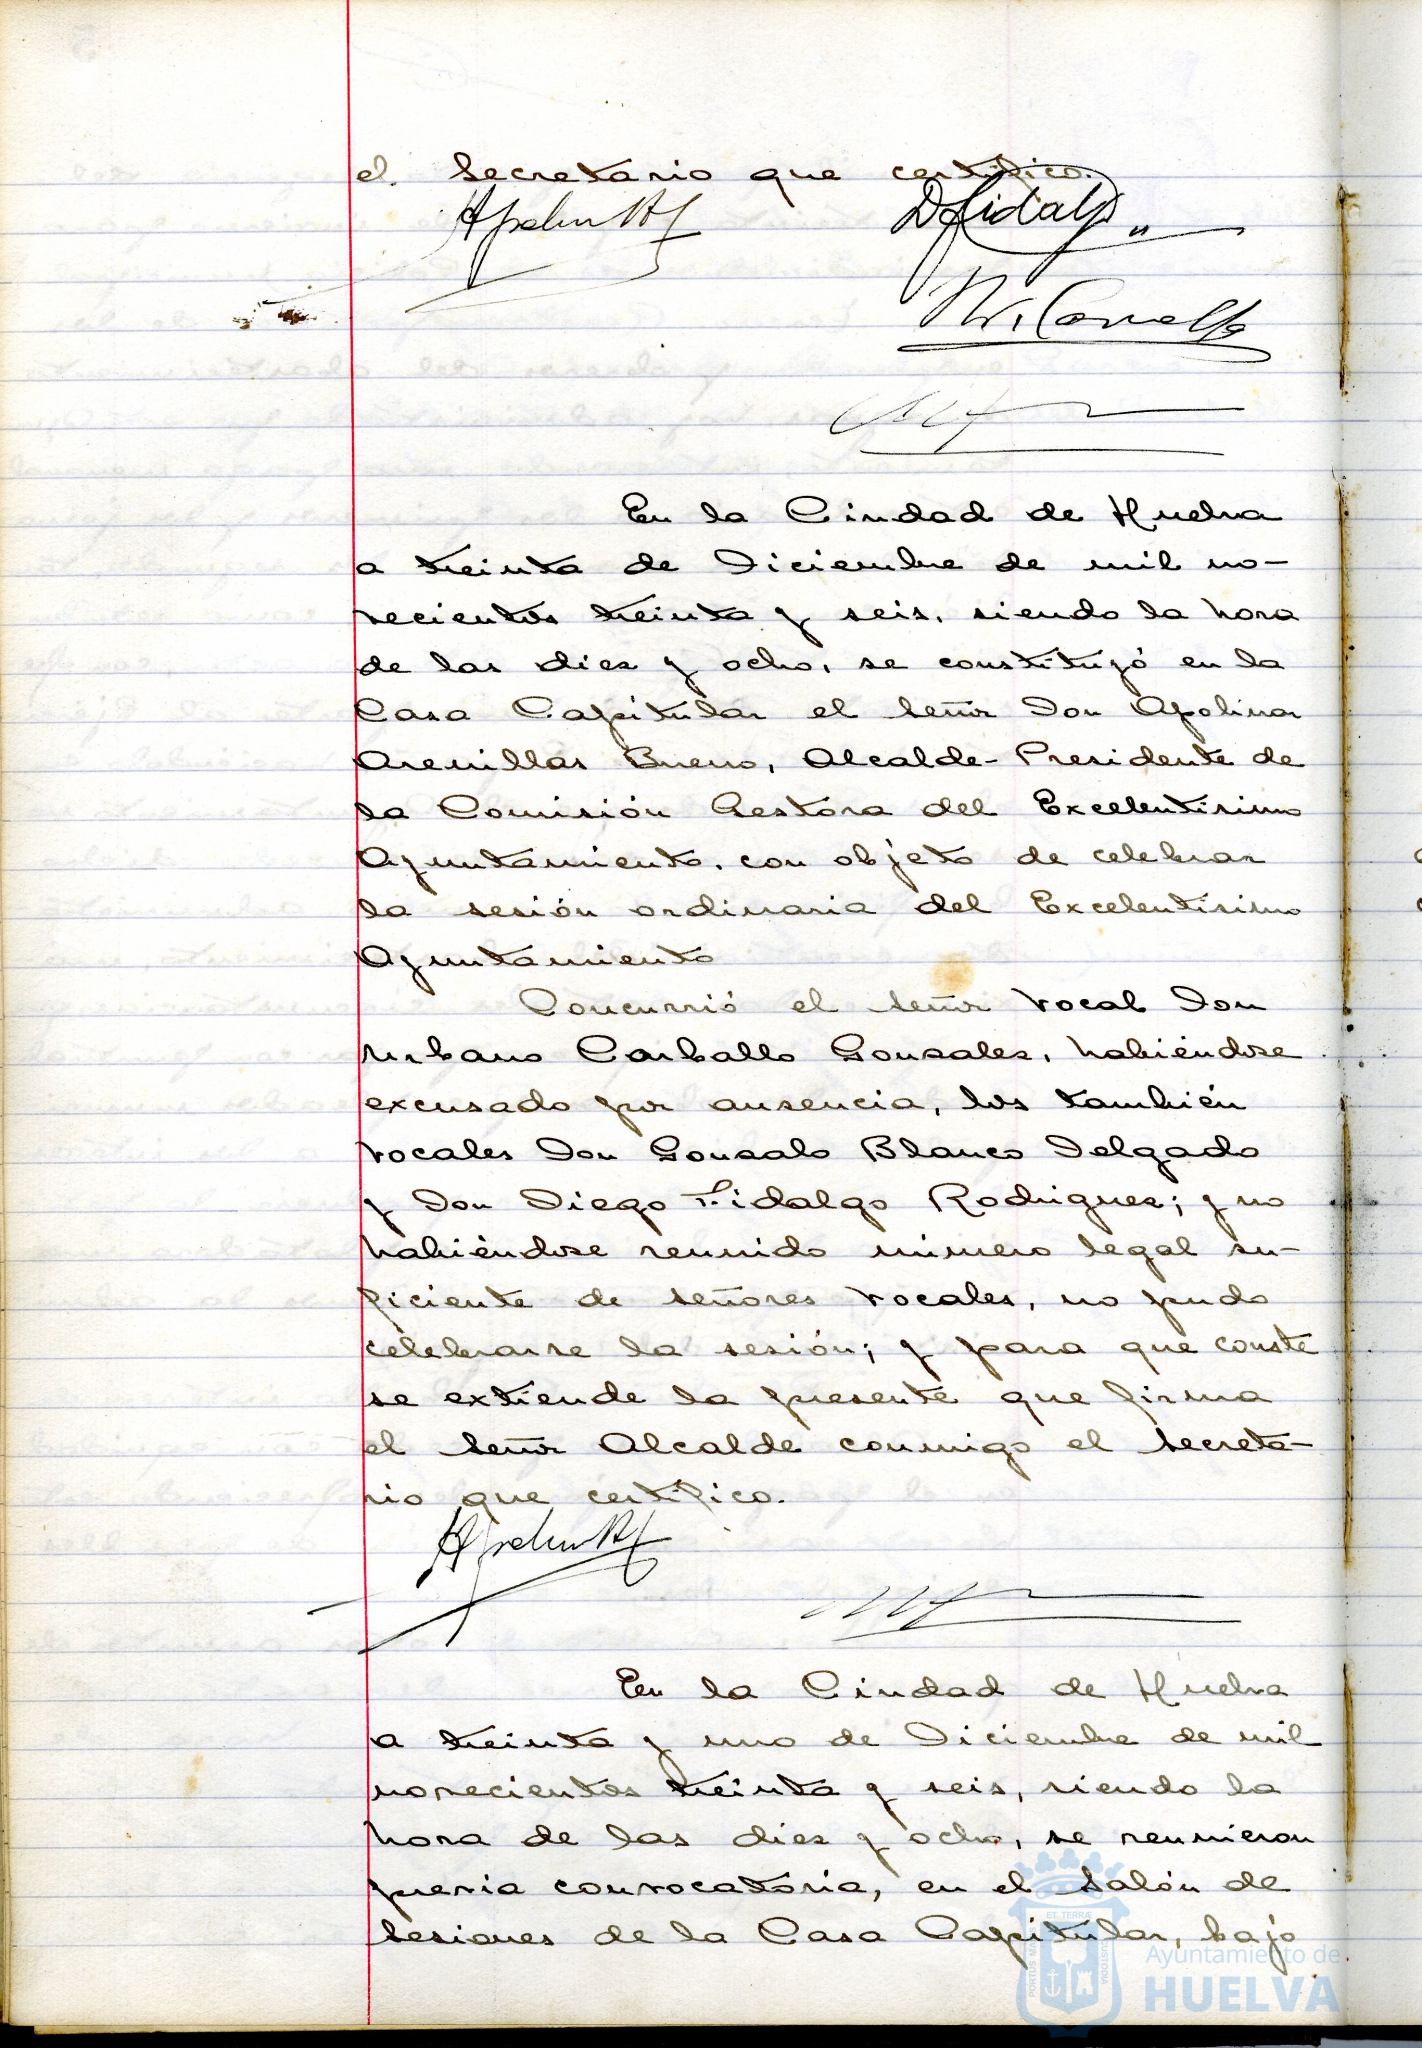 el Secretario que certifico.
D Fidalgo
En la Ciudad de Huelva
a treinta de Diciembre de mil no-
vecientos treinta y seis, siendo la hora
de las diez y ocho, se constituyó en la
Casa Capitular el Señor Don Apolinar
Arenillas Bueno, Alcalde-Presidente de
la Comisión Gestora del Excelentísimo
Ayuntamiento, con objeto de celebrar
la sesión ordinaria del Excelentísimo
Ayuntamiento
Concurrió el Señor Vocal Don
Urbano Carballo Gonzalez, habiéndose
excusado por ausencia, los también
Vocales Don Gonzalo Blanco Delgado
y Don Diego Fidalgo Rodriguez; y no
habiéndose reunido número legal su-
ficiente de Señores Vocales, no pudo
celebrarse la sesión; y para que conste
se extiende la presente que firma
el Señor Alcalde conmigo el Secreta-
rio que certifico.
En la Ciudad de Huelva
a treinta y uno de Diciembre de mil
novecientos treinta y seis, siendo la
hora de las diez y ocho, se reunieron
previa convocatoria, en el Salón de
Sesiones de la Casa Capitular, bajo
Ayuntamiento de
HUELVA